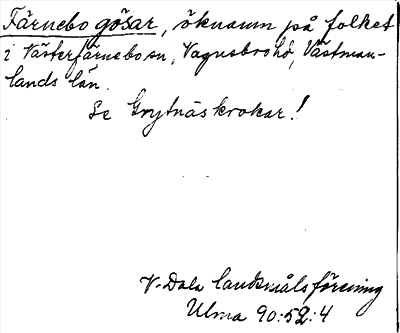 Färnebo gösar, öknamn på folket
i Västerfärnebo sn, Vagnsbro hd, Västman-
lands län.
Se Grytnäs krokar!
V-Dala landsmålsförening
Ulma 90:52:4